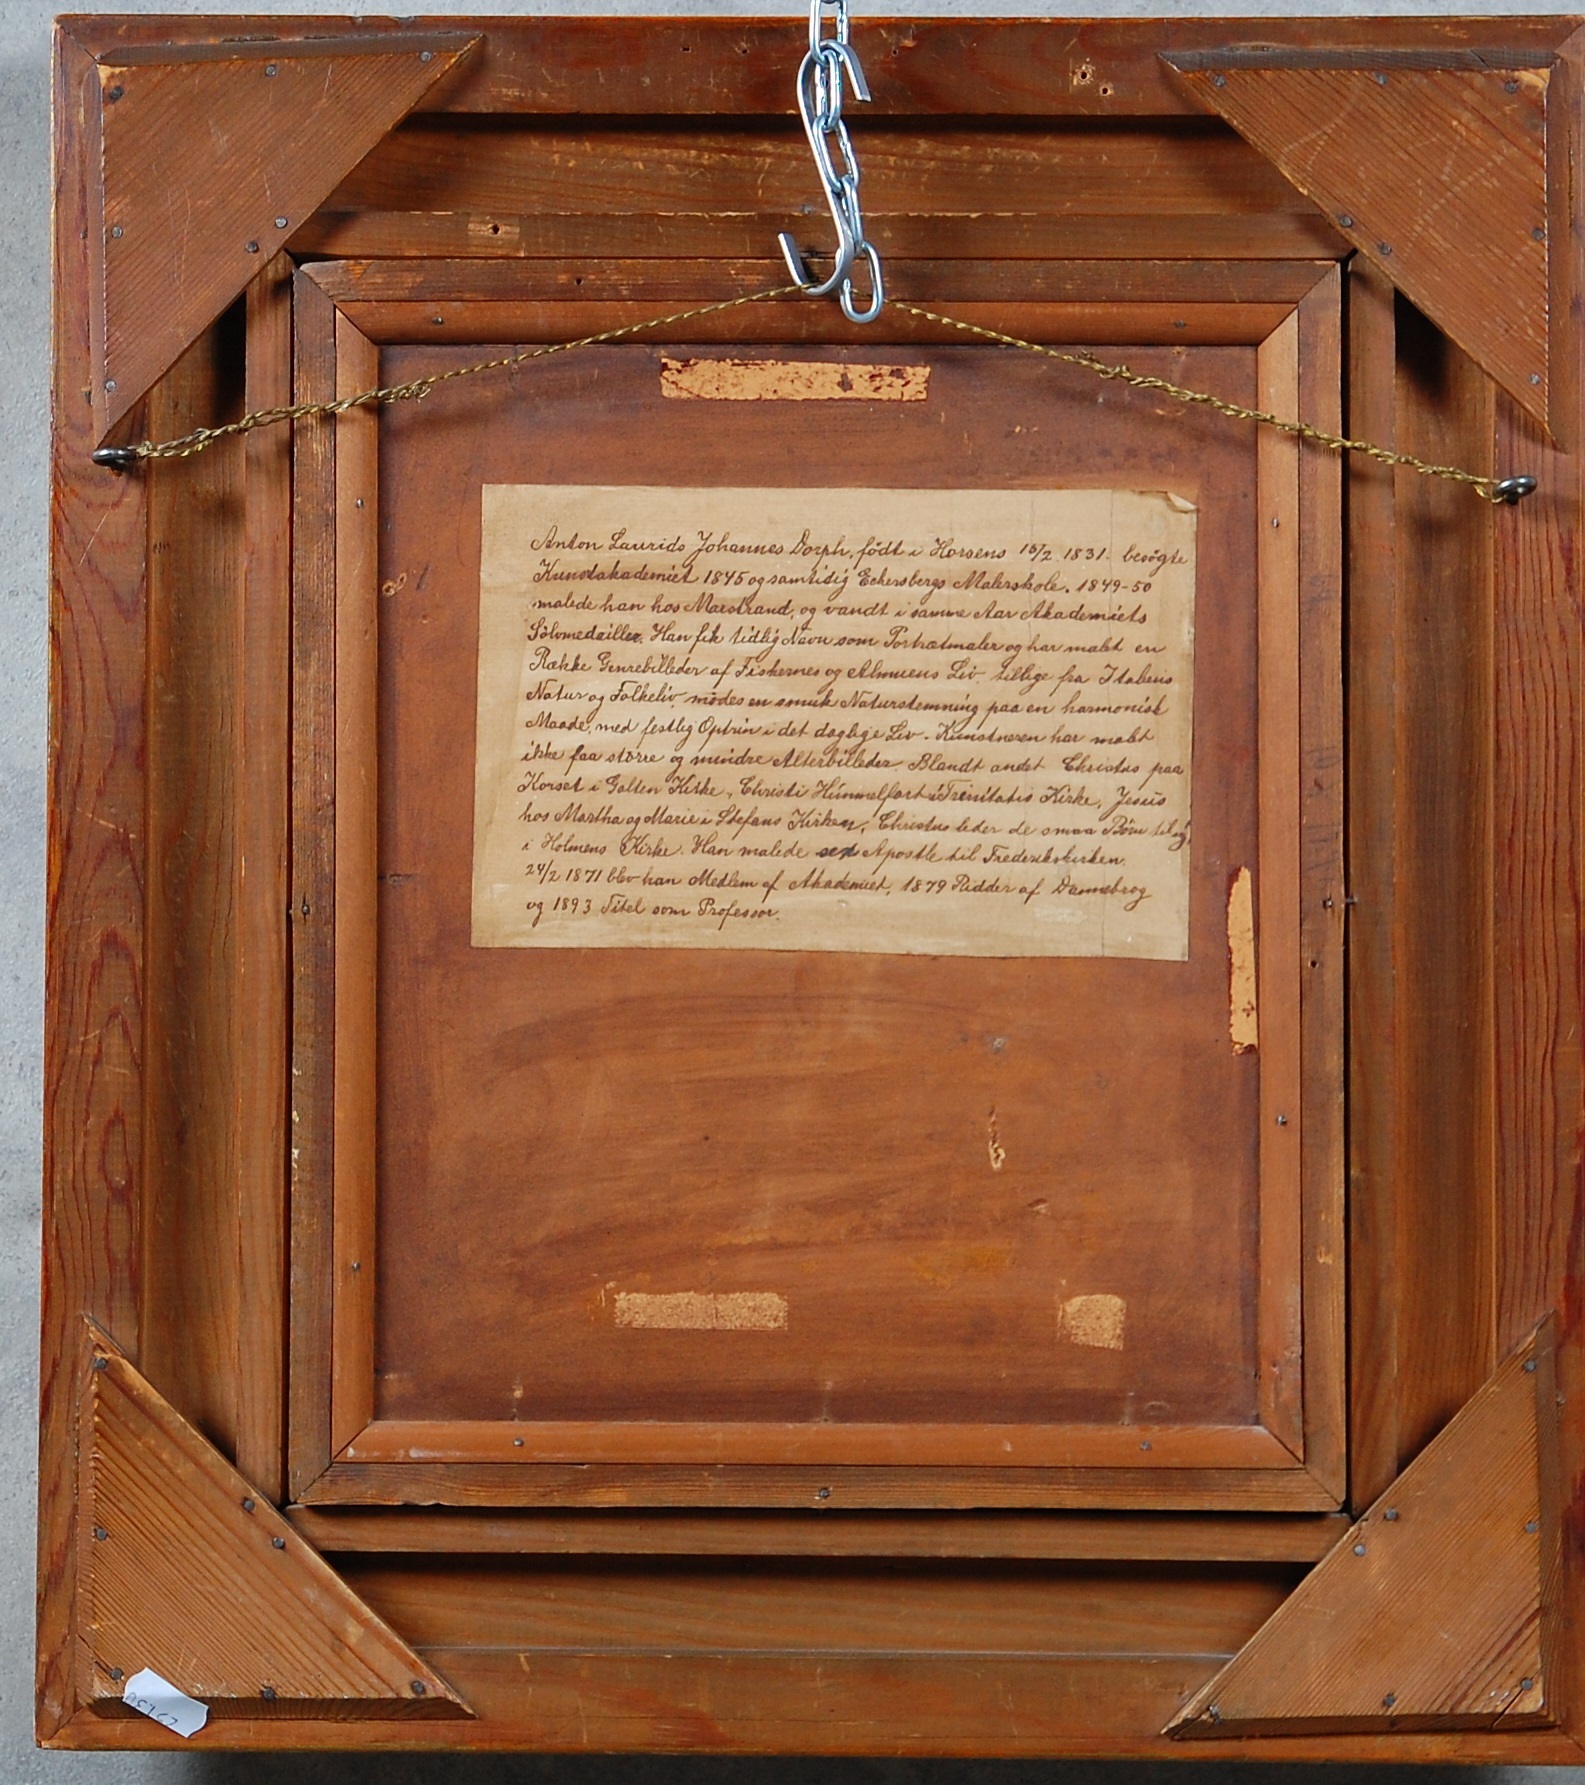 Anton Laurids Johannes Dorph, født i Horsens 15/2 1831. besøgte
Kunstakademiet 1845 og samtidig Eckersbergs Malerskole. 1849-50
malede han hos Marstrand, og vandt i samme Aar Akademiets
Sölvmedailler. Han fik tidlig Navn som Portrætmaler og har malet en
Række Genrebilleder af Fiskernes og Almuens Liv, tillige fra Italiens
Natur og Folkeliv, mödes en smuk Naturstemning paa en harmonisk
Maade, med festlig Optrin i det daglige Liv. Kunstneren har malet
ikke faa større og mindre Alterbilleder. Blandt andet Christus paa
Korset i Galten Kirke, Christi Himmelfart i Trinitatis Kirke, Jesus
hos Martha og Marie i Stefans Kirken, Christus leder de smaa Börn til sig
i Holmens Kirke. Han malede sex Apostle til Frederikskirken.
24/2 1871 blev han Medlem af Akademiet, 1879 Ridder af Dannebrog
og 1893 Titel som Professor.